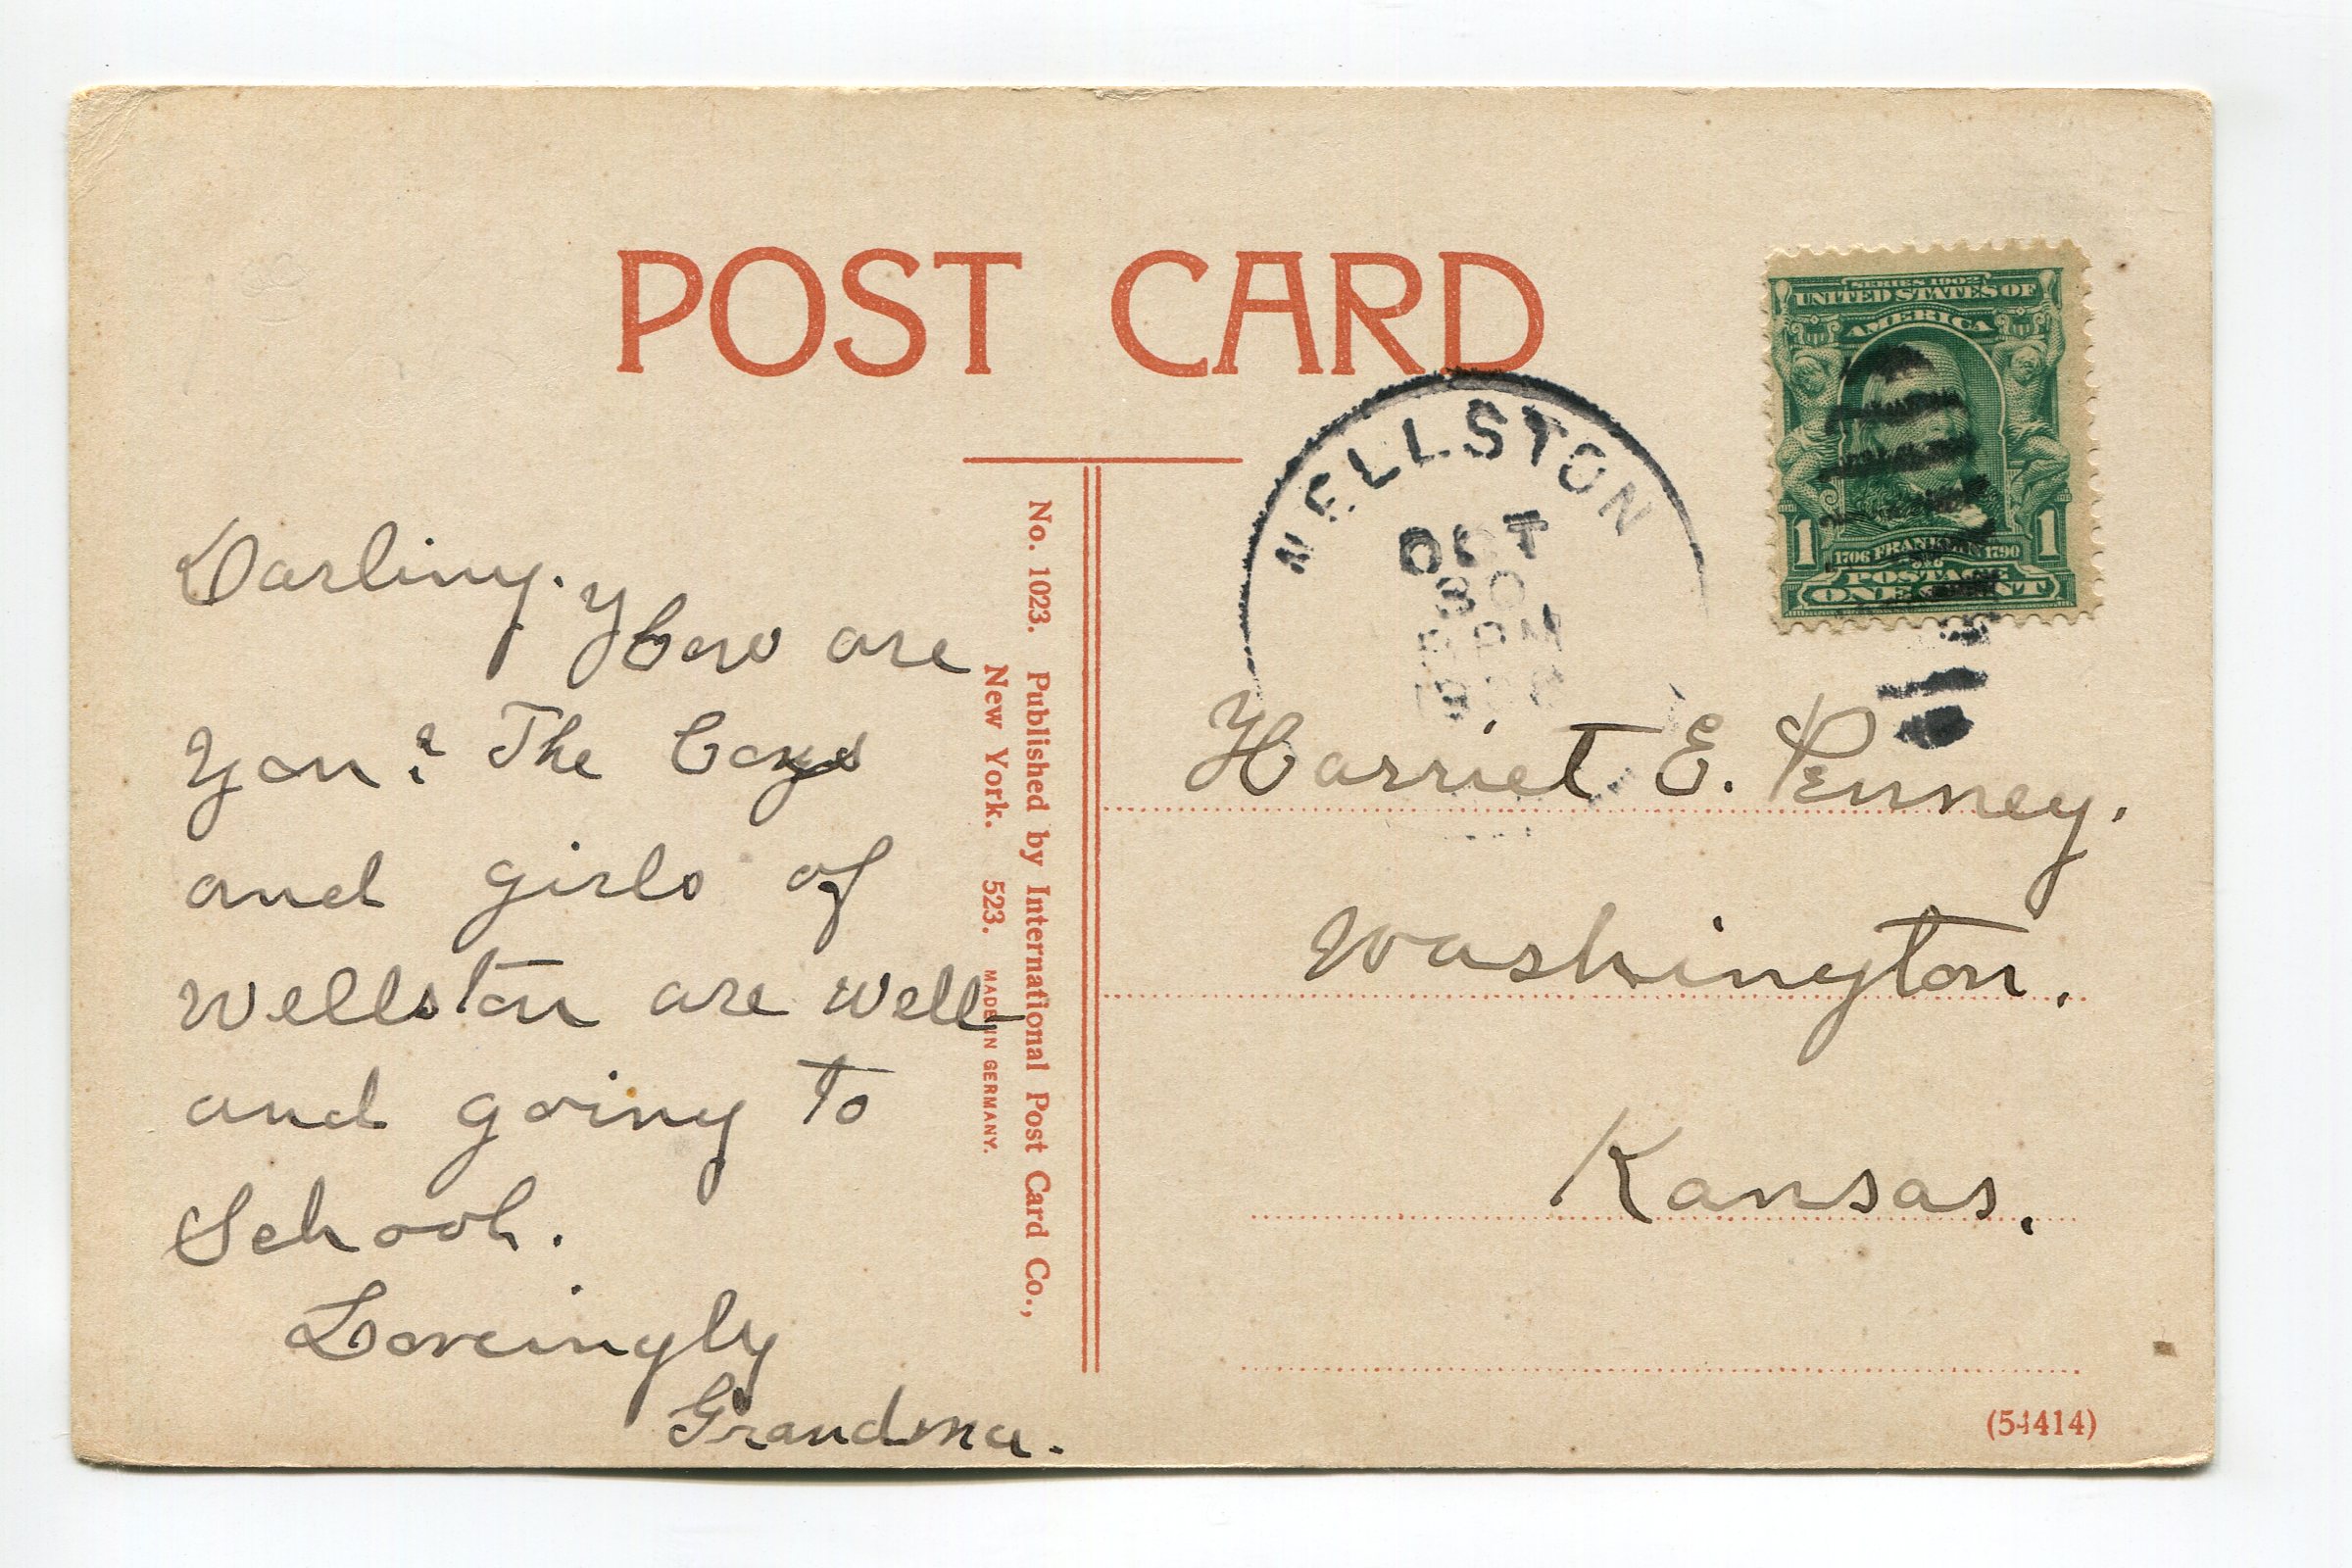 POST CARD
SERIES 1902
UNITED STATES OF
AMERICA
1706 FRANKLIN 1790
1 1
POSTAGE
ONE CENT
WELLSTON
OCT
PM
Darling. How are
you? The boys
and girls of
Wellston are well
and going to
School.
Lovingly
Grandma.
No. 1023. Published by International Post Card Co.,
New York. 523. MADE IN GERMANY.
Harriet E. Penney.
Washington.
Kansas.
(54414)